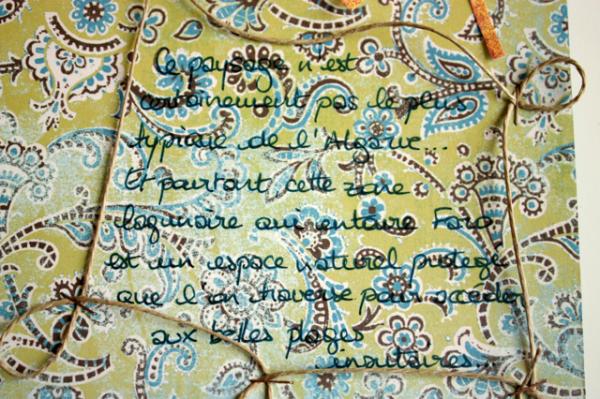 Ce paysage n'est
certainement pas le plus
typique de l'Algarve...
Et pourtant, cette zone
lagunaire qui entoure Faro
est un espace naturel protégé
que l'on traverse pour accéder
aux belles plages
insulaires...